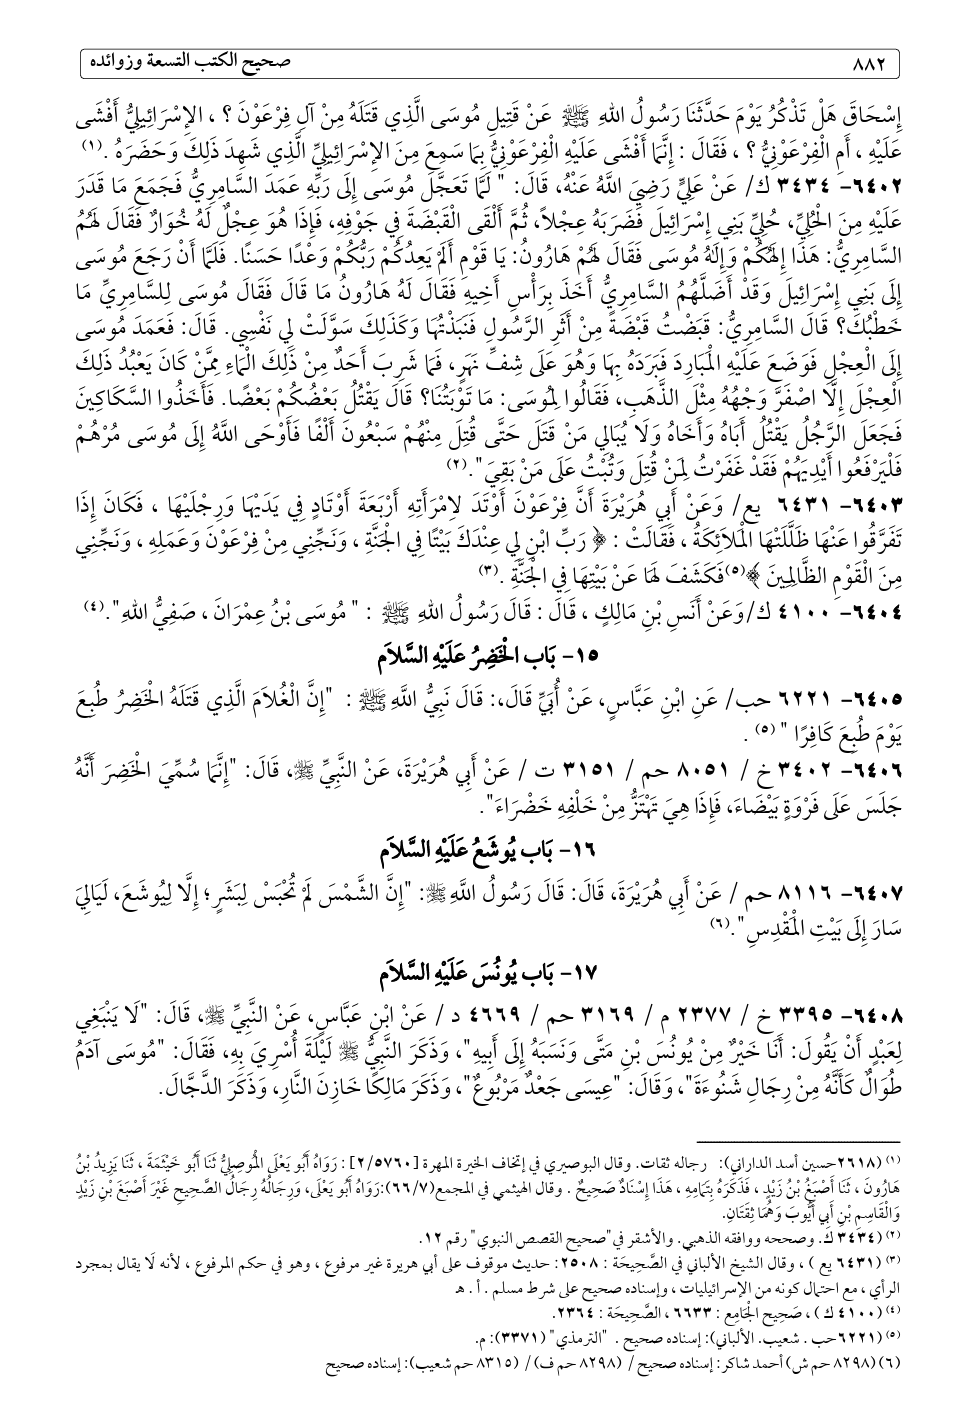 ٨٨٢ صحيح الكتب التسعة وزوائده
إِسْحَاقَ هَلْ تَذْكُرُ يَوْمَ حَدَّثَنَا رَسُولُ اللهِ ﷺ عَنْ قَتِيلِ مُوسَى الَّذِي قَتَلَهُ مِنْ آلِ فِرْعَوْنَ ؟ ، الإِسْرَائِيلِيُّ أَفْشَى
عَلَيْهِ ، أَمِ الْفِرْعَوْنِيُّ ؟ ، فَقَالَ : إِنَّمَا أَفْشَى عَلَيْهِ الْفِرْعَوْنِيُّ بِمَا سَمِعَ مِنَ الإِسْرَائِيلِيِّ الَّذِي شَهِدَ ذَلِكَ وَحَضَرَهُ .(١)
٦٤٠٢- ٣٤٣٤ ك/ عَنْ عَلِيٍّ رَضِيَ اللَّهُ عَنْهُ، قَالَ: " لَمَّا تَعَجَّلَ مُوسَى إِلَى رَبِّهِ عَمَدَ السَّامِرِيُّ فَجَمَعَ مَا قَدَرَ
عَلَيْهِ مِنَ الْحُلِيِّ، حُلِيِّ بَنِي إِسْرَائِيلَ فَضَرَبَهُ عِجْلاً، ثُمَّ أَلْقَى الْقَبْضَةَ فِي جَوْفِهِ، فَإِذَا هُوَ عِجْلٌ لَهُ خُوَارٌ فَقَالَ لَهُمُ
السَّامِرِيُّ: هَذَا إِلَهُكُمْ وَإِلَهُ مُوسَى فَقَالَ لَهُمْ هَارُونُ: يَا قَوْمِ أَلَمْ يَعِدْكُمْ رَبُّكُمْ وَعْدًا حَسَنًا. فَلَمَّا أَنْ رَجَعَ مُوسَى
إِلَى بَنِي إِسْرَائِيلَ وَقَدْ أَضَلَّهُمُ السَّامِرِيُّ أَخَذَ بِرَأْسِ أَخِيهِ فَقَالَ لَهُ هَارُونُ مَا قَالَ فَقَالَ مُوسَى لِلسَّامِرِيِّ مَا
خَطْبُكَ؟ قَالَ السَّامِرِيُّ: قَبَضْتُ قَبْضَةً مِنْ أَثَرِ الرَّسُولِ فَنَبَذْتُهَا وَكَذَلِكَ سَوَّلَتْ لِي نَفْسِي. قَالَ: فَعَمَدَ مُوسَى
إِلَى الْعِجْلِ فَوَضَعَ عَلَيْهِ الْمَبَارِدَ فَبَرَدَهُ بِهَا وَهُوَ عَلَى شِفِّ نَهَرٍ، فَمَا شَرِبَ أَحَدٌ مِنْ ذَلِكَ الْمَاءِ مِمَّنْ كَانَ يَعْبُدُ ذَلِكَ
الْعِجْلَ إِلَّا اصْفَرَّ وَجْهُهُ مِثْلَ الذَّهَبِ، فَقَالُوا لِمُوسَى: مَا تَوْبَتُنَا؟ قَالَ يَقْتُلُ بَعْضُكُمْ بَعْضًا. فَأَخَذُوا السَّكَاكِينَ
فَجَعَلَ الرَّجُلُ يَقْتُلُ أَبَاهُ وَأَخَاهُ وَلَا يُبَالِي مَنْ قَتَلَ حَتَّى قُتِلَ مِنْهُمْ سَبْعُونَ أَلْفًا فَأَوْحَى اللَّهُ إِلَى مُوسَى مُرْهُمْ
فَلْيَرْفَعُوا أَيْدِيَهُمْ فَقَدْ غَفَرْتُ لِمَنْ قُتِلَ وَتُبْتُ عَلَى مَنْ بَقِيَ".(٢)
٦٤٠٣- ٦٤٣١ يع/ وَعَنْ أَبِي هُرَيْرَةَ أَنَّ فِرْعَوْنَ أَوْتَدَ لِامْرَأَتِهِ أَرْبَعَةَ أَوْتَادٍ فِي يَدَيْهَا وَرِجْلَيْهَا ، فَكَانَ إِذَا
تَفَرَّقُوا عَنْهَا ظَلَّلَتْهَا الْمَلاَئِكَةُ ، فَقَالَتْ : ﴿ رَبِّ ابْنِ لِي عِنْدَكَ بَيْتًا فِي الْجَنَّةِ ، وَنَجِّنِي مِنْ فِرْعَوْنَ وَعَمَلِهِ ، وَنَجِّنِي
مِنَ الْقَوْمِ الظَّالِمِينَ ﴾(٥)فَكَشَفَ لَهَا عَنْ بَيْتِهَا فِي الْجَنَّةِ .(٣)
٦٤٠٤- ٤١٠٠ ك/وَعَنْ أَنَسِ بْنِ مَالِكٍ ، قَالَ : قَالَ رَسُولُ اللهِ ﷺ : " مُوسَى بْنُ عِمْرَانَ ، صَفِيُّ اللهِ".(٤)
١٥- بَاب الْخَضِرُ عَلَيْهِ السَّلاَم
٦٤٠٥- ٦٢٢١ حب/ عَنِ ابْنِ عَبَّاسٍ، عَنْ أُبَيٍّ قَالَ،: قَالَ نَبِيُّ اللَّهِ ﷺ : "إِنَّ الْغُلاَمَ الَّذِي قَتَلَهُ الْخَضِرُ طُبِعَ
يَوْمَ طُبِعَ كَافِرًا " (٥) .
٦٤٠٦- ٣٤٠٢ خ / ٨٠٥١ حم / ٣١٥١ ت / عَنْ أَبِي هُرَيْرَةَ، عَنْ النَّبِيِّ ﷺ، قَالَ: "إِنَّمَا سُمِّيَ الْخَضِرَ أَنَّهُ
جَلَسَ عَلَى فَرْوَةٍ بَيْضَاءَ، فَإِذَا هِيَ تَهْتَزُّ مِنْ خَلْفِهِ خَضْرَاءَ".
١٦- بَاب يُوشَعُ عَلَيْهِ السَّلاَم
٦٤٠٧- ٨١١٦ حم / عَنْ أَبِي هُرَيْرَةَ، قَالَ: قَالَ رَسُولُ اللَّهِ ﷺ: "إِنَّ الشَّمْسَ لَمْ تُحْبَسْ لِبَشَرٍ؛ إِلَّا لِيُوشَعَ، لَيَالِيَ
سَارَ إِلَى بَيْتِ الْمَقْدِسِ".(٦)
١٧- بَاب يُونُسَ عَلَيْهِ السَّلاَم
٦٤٠٨- ٣٣٩٥ خ / ٢٣٧٧ م / ٣١٦٩ حم / ٤٦٦٩ د / عَنْ ابْنِ عَبَّاسٍ، عَنْ النَّبِيِّ ﷺ، قَالَ: "لَا يَنْبَغِي
لِعَبْدٍ أَنْ يَقُولَ: أَنَا خَيْرٌ مِنْ يُونُسَ بْنِ مَتَّى وَنَسَبَهُ إِلَى أَبِيهِ"، وَذَكَرَ النَّبِيُّ ﷺ لَيْلَةَ أُسْرِيَ بِهِ، فَقَالَ: "مُوسَى آدَمُ
طُوَالٌ كَأَنَّهُ مِنْ رِجَالِ شَنُوءَةَ"، وَقَالَ: "عِيسَى جَعْدٌ مَرْبُوعٌ"، وَذَكَرَ مَالِكًا خَازِنَ النَّارِ، وَذَكَرَ الدَّجَّالَ.
(١) (٢٦١٨حسين أسد الداراني): رجاله ثقات. وقال البوصيري في إتحاف الخيرة المهرة [٢/٥٧٦٠] : رَوَاهُ أَبُو يَعْلَى الْمُوصِلِيُّ ثَنَا أَبُو خَيْثَمَةَ ، ثَنَا يَزِيدُ بْنُ
هَارُونَ ، ثَنَا أَصْبَغُ بْنُ زَيْدٍ ، فَذَكَرَهُ بِتَمَامِهِ ، هَذَا إِسْنَادٌ صَحِيحٌ . وقال الهيثمي في المجمع(٦٦/٧):رَوَاهُ أَبُو يَعْلَى، وَرِجَالُهُ رِجَالُ الصَّحِيحِ غَيْرَ أَصْبَغَ بْنِ زَيْدٍ
وَالْقَاسِمِ بْنِ أَبِي أَيُّوبَ وَهُمَا ثِقَتَانِ.
(٢) (٣٤٣٤ ك. وصححه ووافقه الذهبي. والأشقر في"صحيح القصص النبوي" رقم ١٢.
(٣) (٦٤٣١ يع ) ، وقال الشيخ الألباني في الصَّحِيحَة : ٢٥٠٨: حديث موقوف على أبي هريرة غير مرفوع ، وهو في حكم المرفوع ، لأنه لَا يقال بمجرد
الرأي ، مع احتمال كونه من الإسرائيليات ، وإسناده صحيح على شرط مسلم . أ . هـ
(٤) (٤١٠٠ ك ) ، صَحِيح الْجَامِع : ٦٦٣٣ ، الصَّحِيحَة : ٢٣٦٤.
(٥) (٦٢٢١حب . شعيب. الألباني): إسناده صحيح . "الترمذي" (٣٣٧١): م.
(٦) (٨٢٩٨ حم ش) أحمد شاكر: إسناده صحيح / (٨٢٩٨ حم ف) / (٨٣١٥ حم شعيب): إسناده صحيح